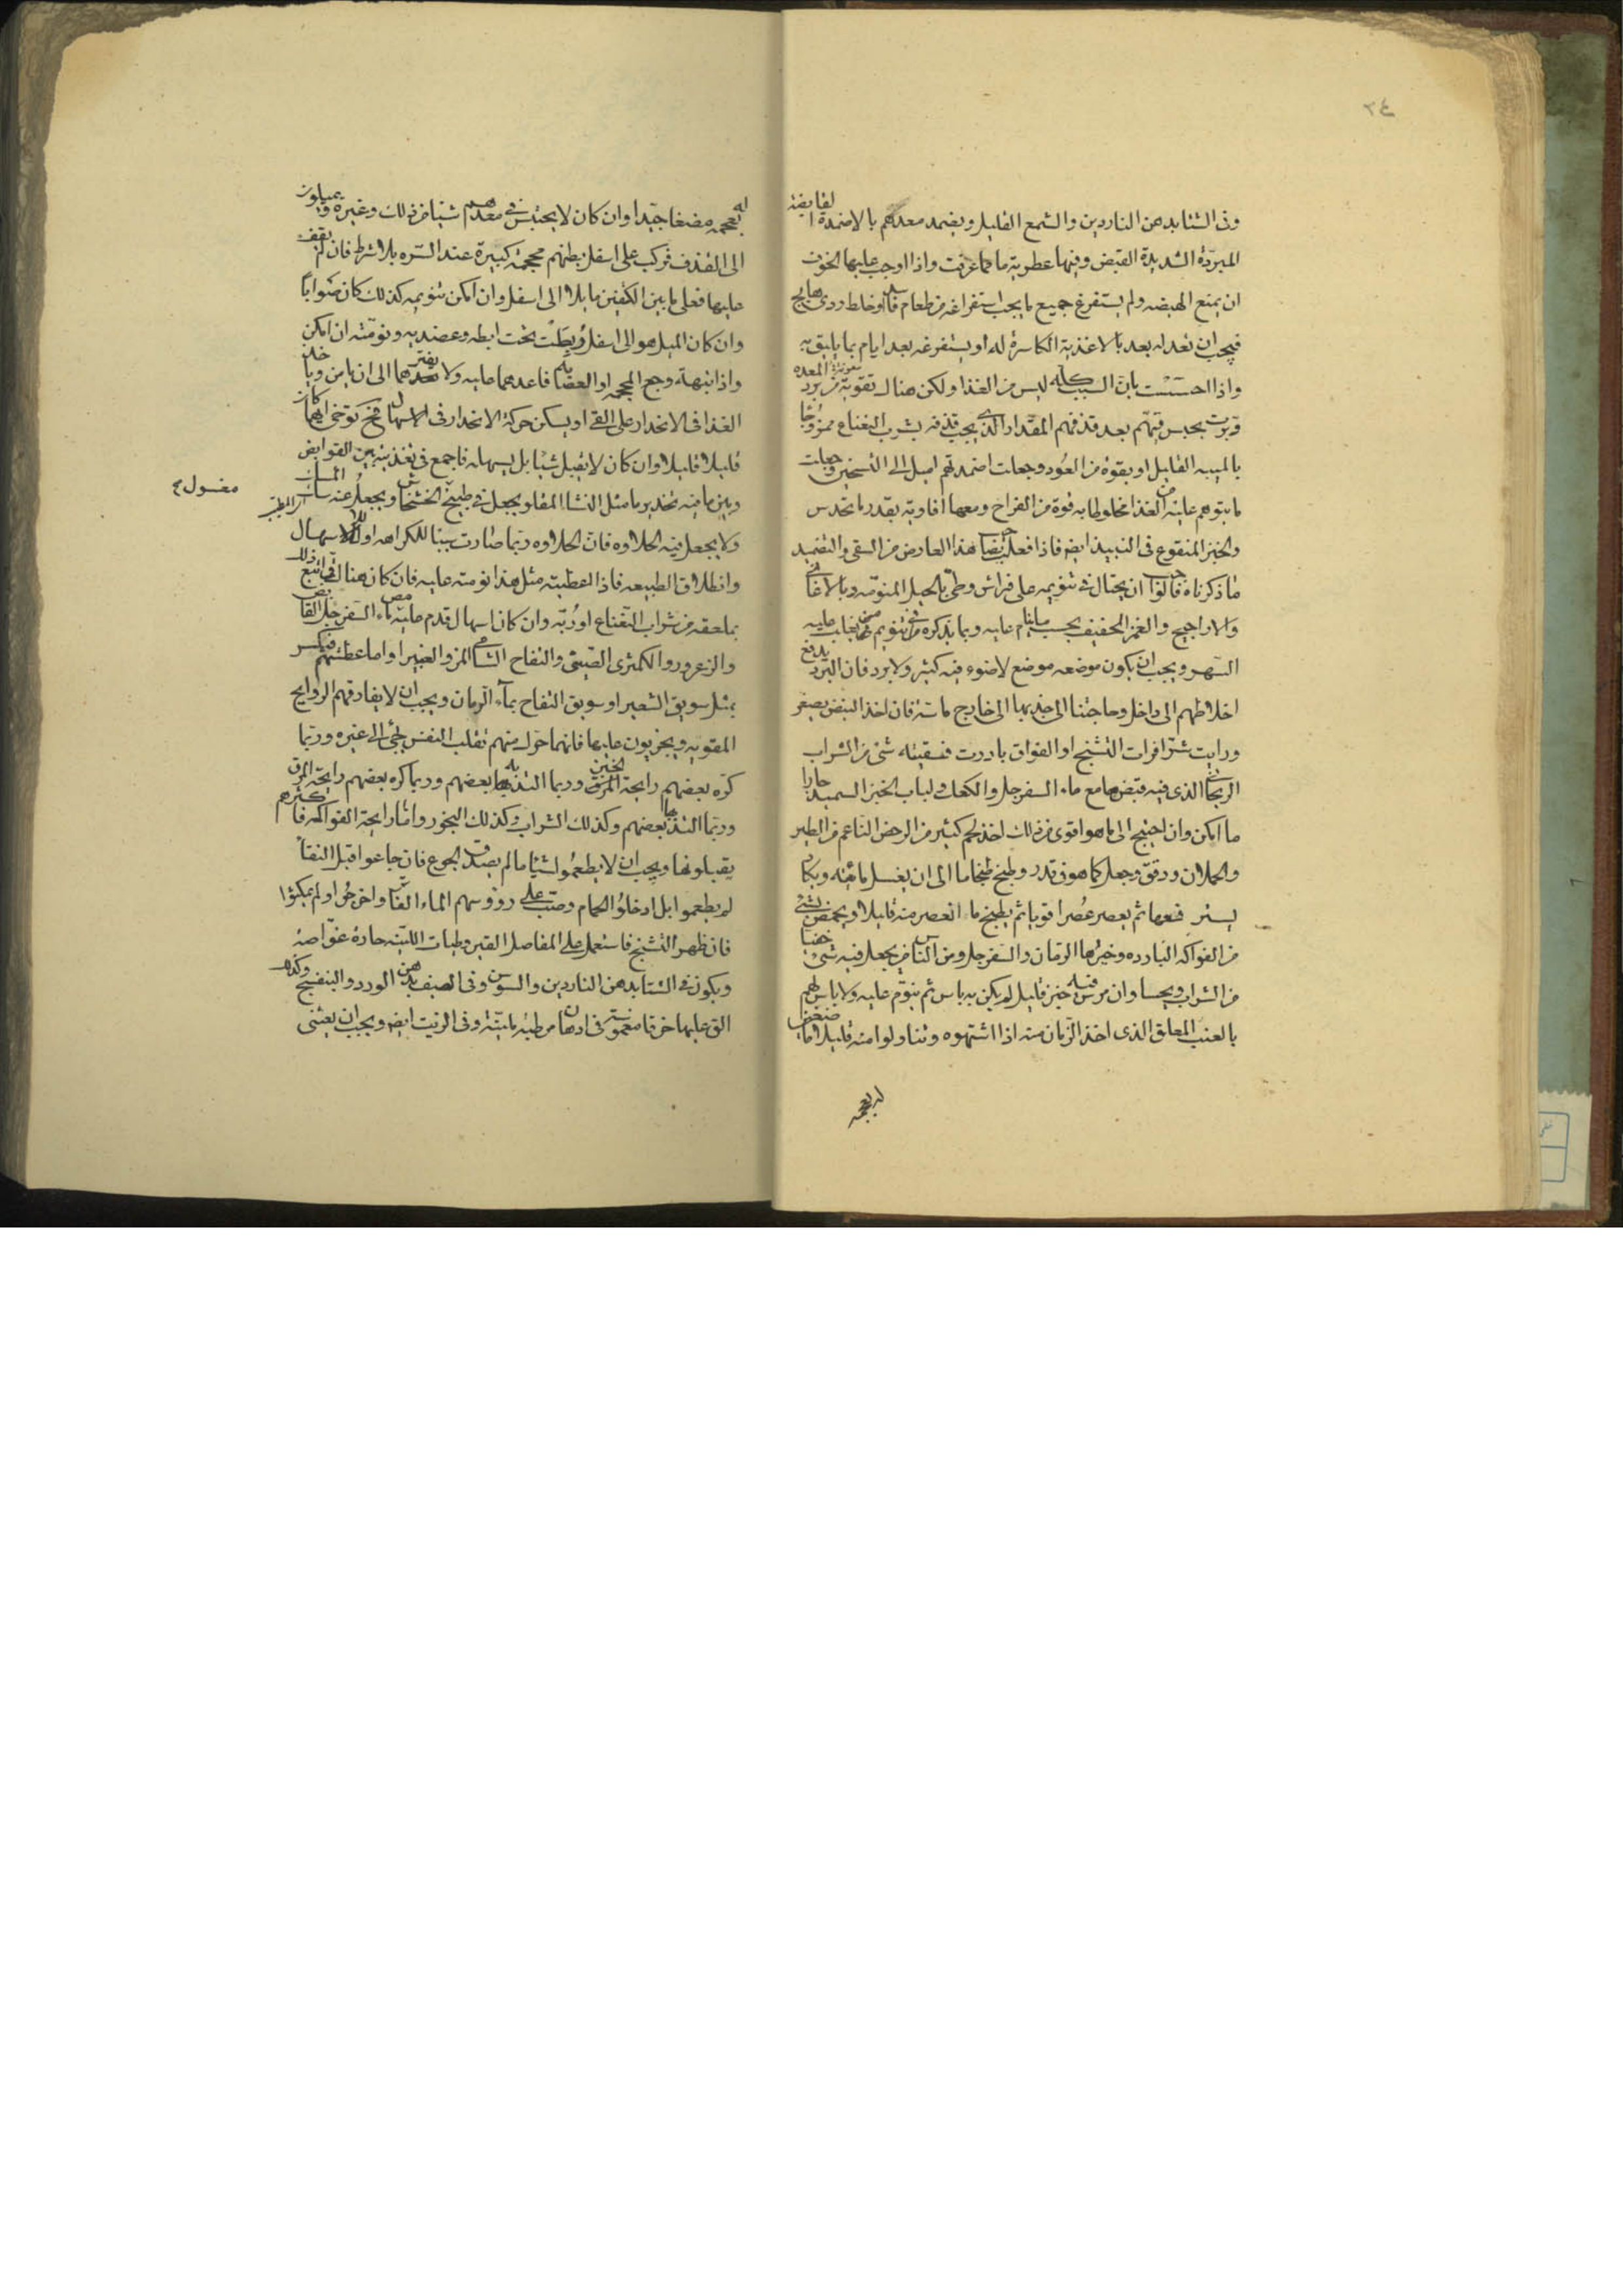 ٢٤
وفى الشتا بدهن الناردين والشمع القليل ويضمد معدتهم بالاضمدة القابضة
المبردة الشديدة القبض وفيها عطرية ما مما عرفت واذا اوجب عليها الخوف
ان يمنع الهيضه ولم يستفرغ جميع ما يجب استفراغه من طعام فاسد او خلط ردى هايج
فيجب ان تعدله بعد بالاغذية الكاسرة له او يستفرغه بعد ايام بما يليق به
واذا احسست بان السبب كله ليس من الغذا ولكن هناك تقويته من برد المعده
دبرت بحبس قيئهم بعد قذفهم المقدار الذى يجب قذفه بشرب النعناع ممزوجًا
بالميبه القليل او بقوة من العود وجعلت اضمدتهم اميل الى التسخين وجعلت
ما ينومهم عليه من الغذا مخلوطا به قوة من الفراخ ومعها افاويه بقدر ما تحدس
والخبز المنقوع فى النبيذ ايضا فاذا فعل بصاحب هذا العارض من السقى والتضميد
ما ذكرناه قالوا ان يحتال فى تنويمه على فراش وطى بالحيل المنومه وبالاغانى
والاراجيح والغمز الخفيف بحسب ما ينام عليه وبما نذكره فى تنويم من يغلب عليه
السهر ويجب ان يكون موضعه موضع لا ضوء فيه كثير ولا برد فان البرد يدفع
اخلاطهم الى داخل وحاجتنا الى جذبها الى خارج ماسة فان اخذ النبض يصغر
ورايت شيئا من اثرات التشنج او الفواق بادرت فسقيته شئ من الشراب
الريحانى الذى فيه قبض ما مع ماء السفرجل والكعك ولباب الخبز السميذ حارا
ما امكن وان احتيج الى ما هو اقوى من ذلك اخذ لحم كثير من الرخص الناعم من الطير
والحملان ودقق وجعل كما هو فى قدر وطبخ طبخا ما الى ان يغسل مائيته ويكاد
يسترجعها ثم يعصر عُصرا قويا ثم يطبخ ما انعصر منه قليلا ويحمض بشئ
من الفواكه البارده وخيرها الرمان والسفرجل ومن الناس من يجعل فيه شئ خفيا
من الشراب ويحسا وان مرس فيه خبز قليل لم يكن به باس ثم ينوم عليه ولا باس لهم
بالعنب المعلق الذى اخذ الزمان منه اذا اشتهوه وتناولوا منه قليلا ماضغين
له بعجمه
له بعجمه مضغا جيدا وان كان لا يحتبس فى معدتهم شيئا من ذلك وغيره ويميلون
الى القذف فركب على اسفل بطنهم محجمة كبيرة عند السره بلا شرط فان لم يقف
عليها فعلى ما بين الكتفين مايلا الى اسفل وان امكن تنويمه كذلك كان صوابًا
وان كان الميل هو الى اسفل ربطت تحت ابطه وعضديه ونومته ان امكن
واذا انتبه وجع المحجمه او العصابه فاعدهما عليه ولا تفتر تعدهما الى ان يامن ويأخذ
الغذا فى الانحدار على القئ او يسكن حركة الانحدار فى الاسهال فح توخى ايهما كان
قليلا قليلا وان كان لا يقبل شيئا بل يسهله فاجمع فى تغذيته بين القوابض
وبين ما فيه تخدير ما مثل النشا المقلو يجعل فى طبيخ الخشخاش ويجعل عنه
مغسول
ولا يجعل فيه الحلاوه فان الحلاوه ربما صارت سببا للكراهه اوللاسهال
وانطلاق الطبيعه فاذا اعطيته مثل هذا نومته عليه فان كان هناك قئ اتبع ذلك
بملعقه من شراب النعناع او رُبّه وان كان اسهال قدم عليه مص ماء السفرجل القابض
والزعرور والكمثرى الصينى والتفاح الشامى المز والغبيرا واما عطشهم فيكسر
بمثل سويق الشعير او سويق التفاح بماء الرمان ويجب ان لا يفارقهم الروايح
المقويه ويجربون عليها فانهما حرك منهم تقلب النفس نحى الى غيره وربما
كره بعضهم رايحة الخبز وربما التذ بها بعضهم وربما كره بعضهم رايحة المرق
وربما التذها بعضهم وكذلك الشراب وكذلك البخور واما رايحة الفواكه فاكثرهم
يقبلونها ويجب ان لا يطعموا شيئا ما لم يصدق الجوع فان جاعوا قبل النقا
لم يطعموا بل ادخلوا الحمام وصب على رؤوسهم الماء الفاتر واخرجوا ولم يمكثوا
فان ظهر التشنج فاستعمل على المفاصل القيروطيات اللينه حارة غواصة
ويكون فى الشتا بدهن الناردين والسوسن وفى الصيف بدهن الورد والبنفسج وكذا
الق عليها خرقا مغموسة فى ادهان مرطبة ملينة وفى الزيت ايضا ويجب ان يعتنى